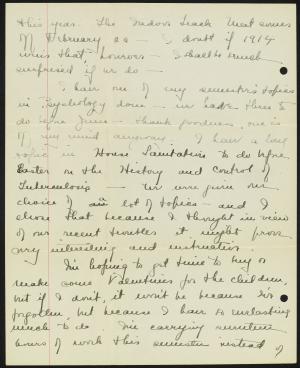 this year. The Indoor Track Meet comes
off February 22 - I doubt if 1914
wins that honor - I shall be much
surprised if we do -
I have one of my semester's topics
in Psychology done - we have three to
do before June - thank goodness, one is
off my mind anyway. I have a long
topic in House Sanitation to do before
Easter on the History and Control of
Tuberculosis - we were given our
choice of a lot of topics - and I
chose that because I thought in view
of our recent troubles it might prove
very interesting and instructive.
I'm hoping to get time to buy or
make some Valentines for the children,
but if I don't, it won't be because I've
forgotten, but because I have so everlasting
much to do. I'm carrying seventeen
hours of work this semester instead of